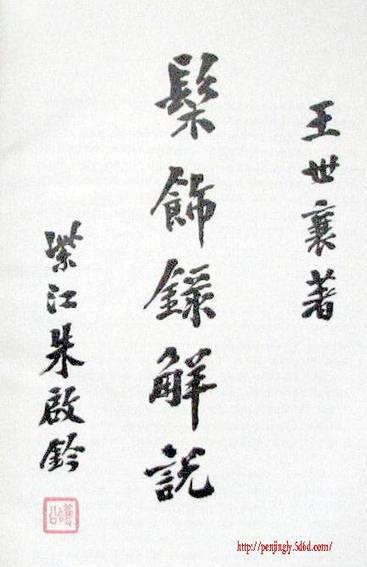 王世襄著
髹飾錄解說
紫江朱啟鈐
http://penjingly.5d6d.com/